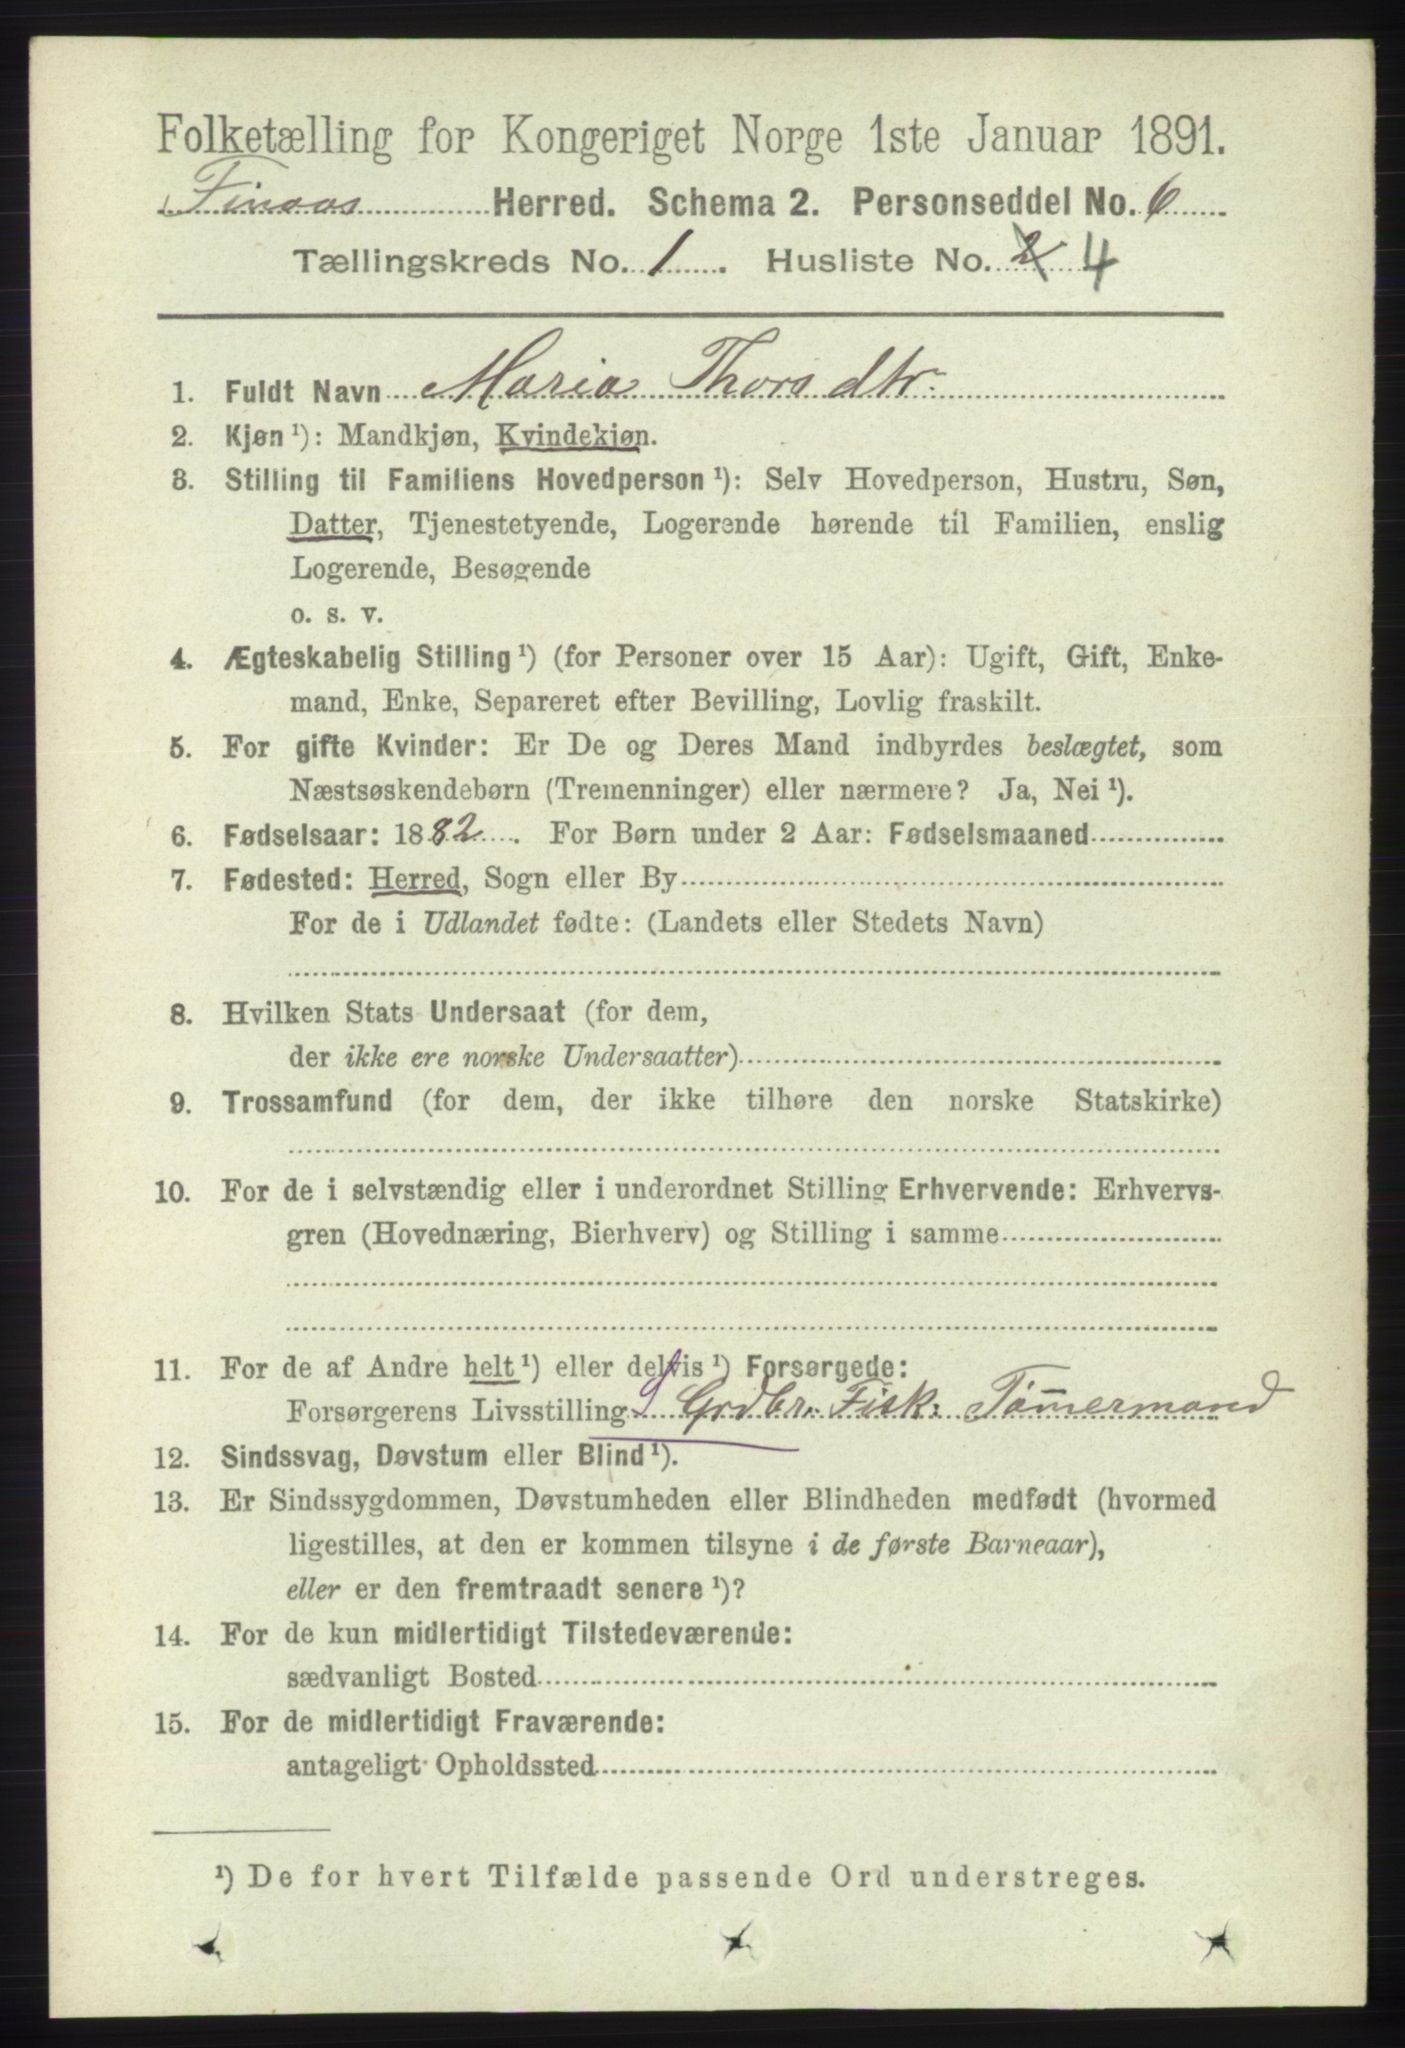 Folketælling for Kongeriget Norge 1ste Januar 1891.
Finaas Herred. Schema 2. Personseddel No. 6
Tællingskreds No. 1. Husliste No. 2 4
1. Fuldt Navn Maria Thorsdtr.
2. Kjøn ¹): Mandkjøn, Kvindekjøn.
3. Stilling til Familiens Hovedperson ¹): Selv Hovedperson, Hustru, Søn,
Datter, Tjenestetyende, Logerende hørende til Familien, enslig
Logerende, Besøgende
o. s. v.
4. Ægteskabelig Stilling ¹) (for Personer over 15 Aar): Ugift, Gift, Enke-
mand, Enke, Separeret efter Bevilling, Lovlig fraskilt.
5. For gifte Kvinder: Er De og Deres Mand indbyrdes beslægtet, som
Næstsøskendebørn (Tremenninger) eller nærmere? Ja, Nei ¹).
6. Fødselsaar: 1882. For Børn under 2 Aar: Fødselsmaaned
7. Fødested: Herred, Sogn eller By
For de i Udlandet fødte: (Landets eller Stedets Navn)
8. Hvilken Stats Undersaat (for dem,
der ikke ere norske Undersaatter)
9. Trossamfund (for dem, der ikke tilhøre den norske Statskirke)
10. For de i selvstændig eller i underordnet Stilling Erhvervende: Erhvervs-
gren (Hovednæring, Bierhverv) og Stilling i samme
11. For de af Andre helt ¹) eller delvis ¹) Forsørgede:
Forsørgerens Livsstilling S Grdbr. Fisk. Tømmermand
12. Sindssvag, Døvstum eller Blind ¹).
13. Er Sindssygdommen, Døvstumheden eller Blindheden medfødt (hvormed
ligestilles, at den er kommen tilsyne i de første Barneaar),
eller er den fremtraadt senere ¹)?
14. For de kun midlertidigt Tilstedeværende:
sædvanligt Bosted
15. For de midlertidigt Fraværende:
antageligt Opholdssted
¹) De for hvert Tilfælde passende Ord understreges.